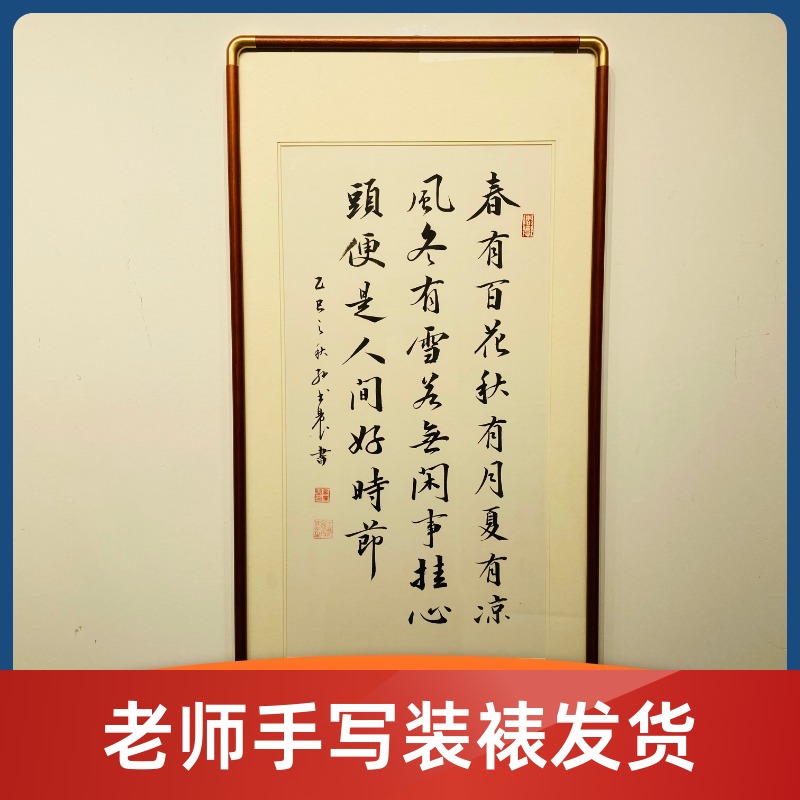 春有百花秋有月夏有凉
風冬有雪若無闲事挂心
頭便是人间好時節
乙巳之秋
書
老师手写装裱发货